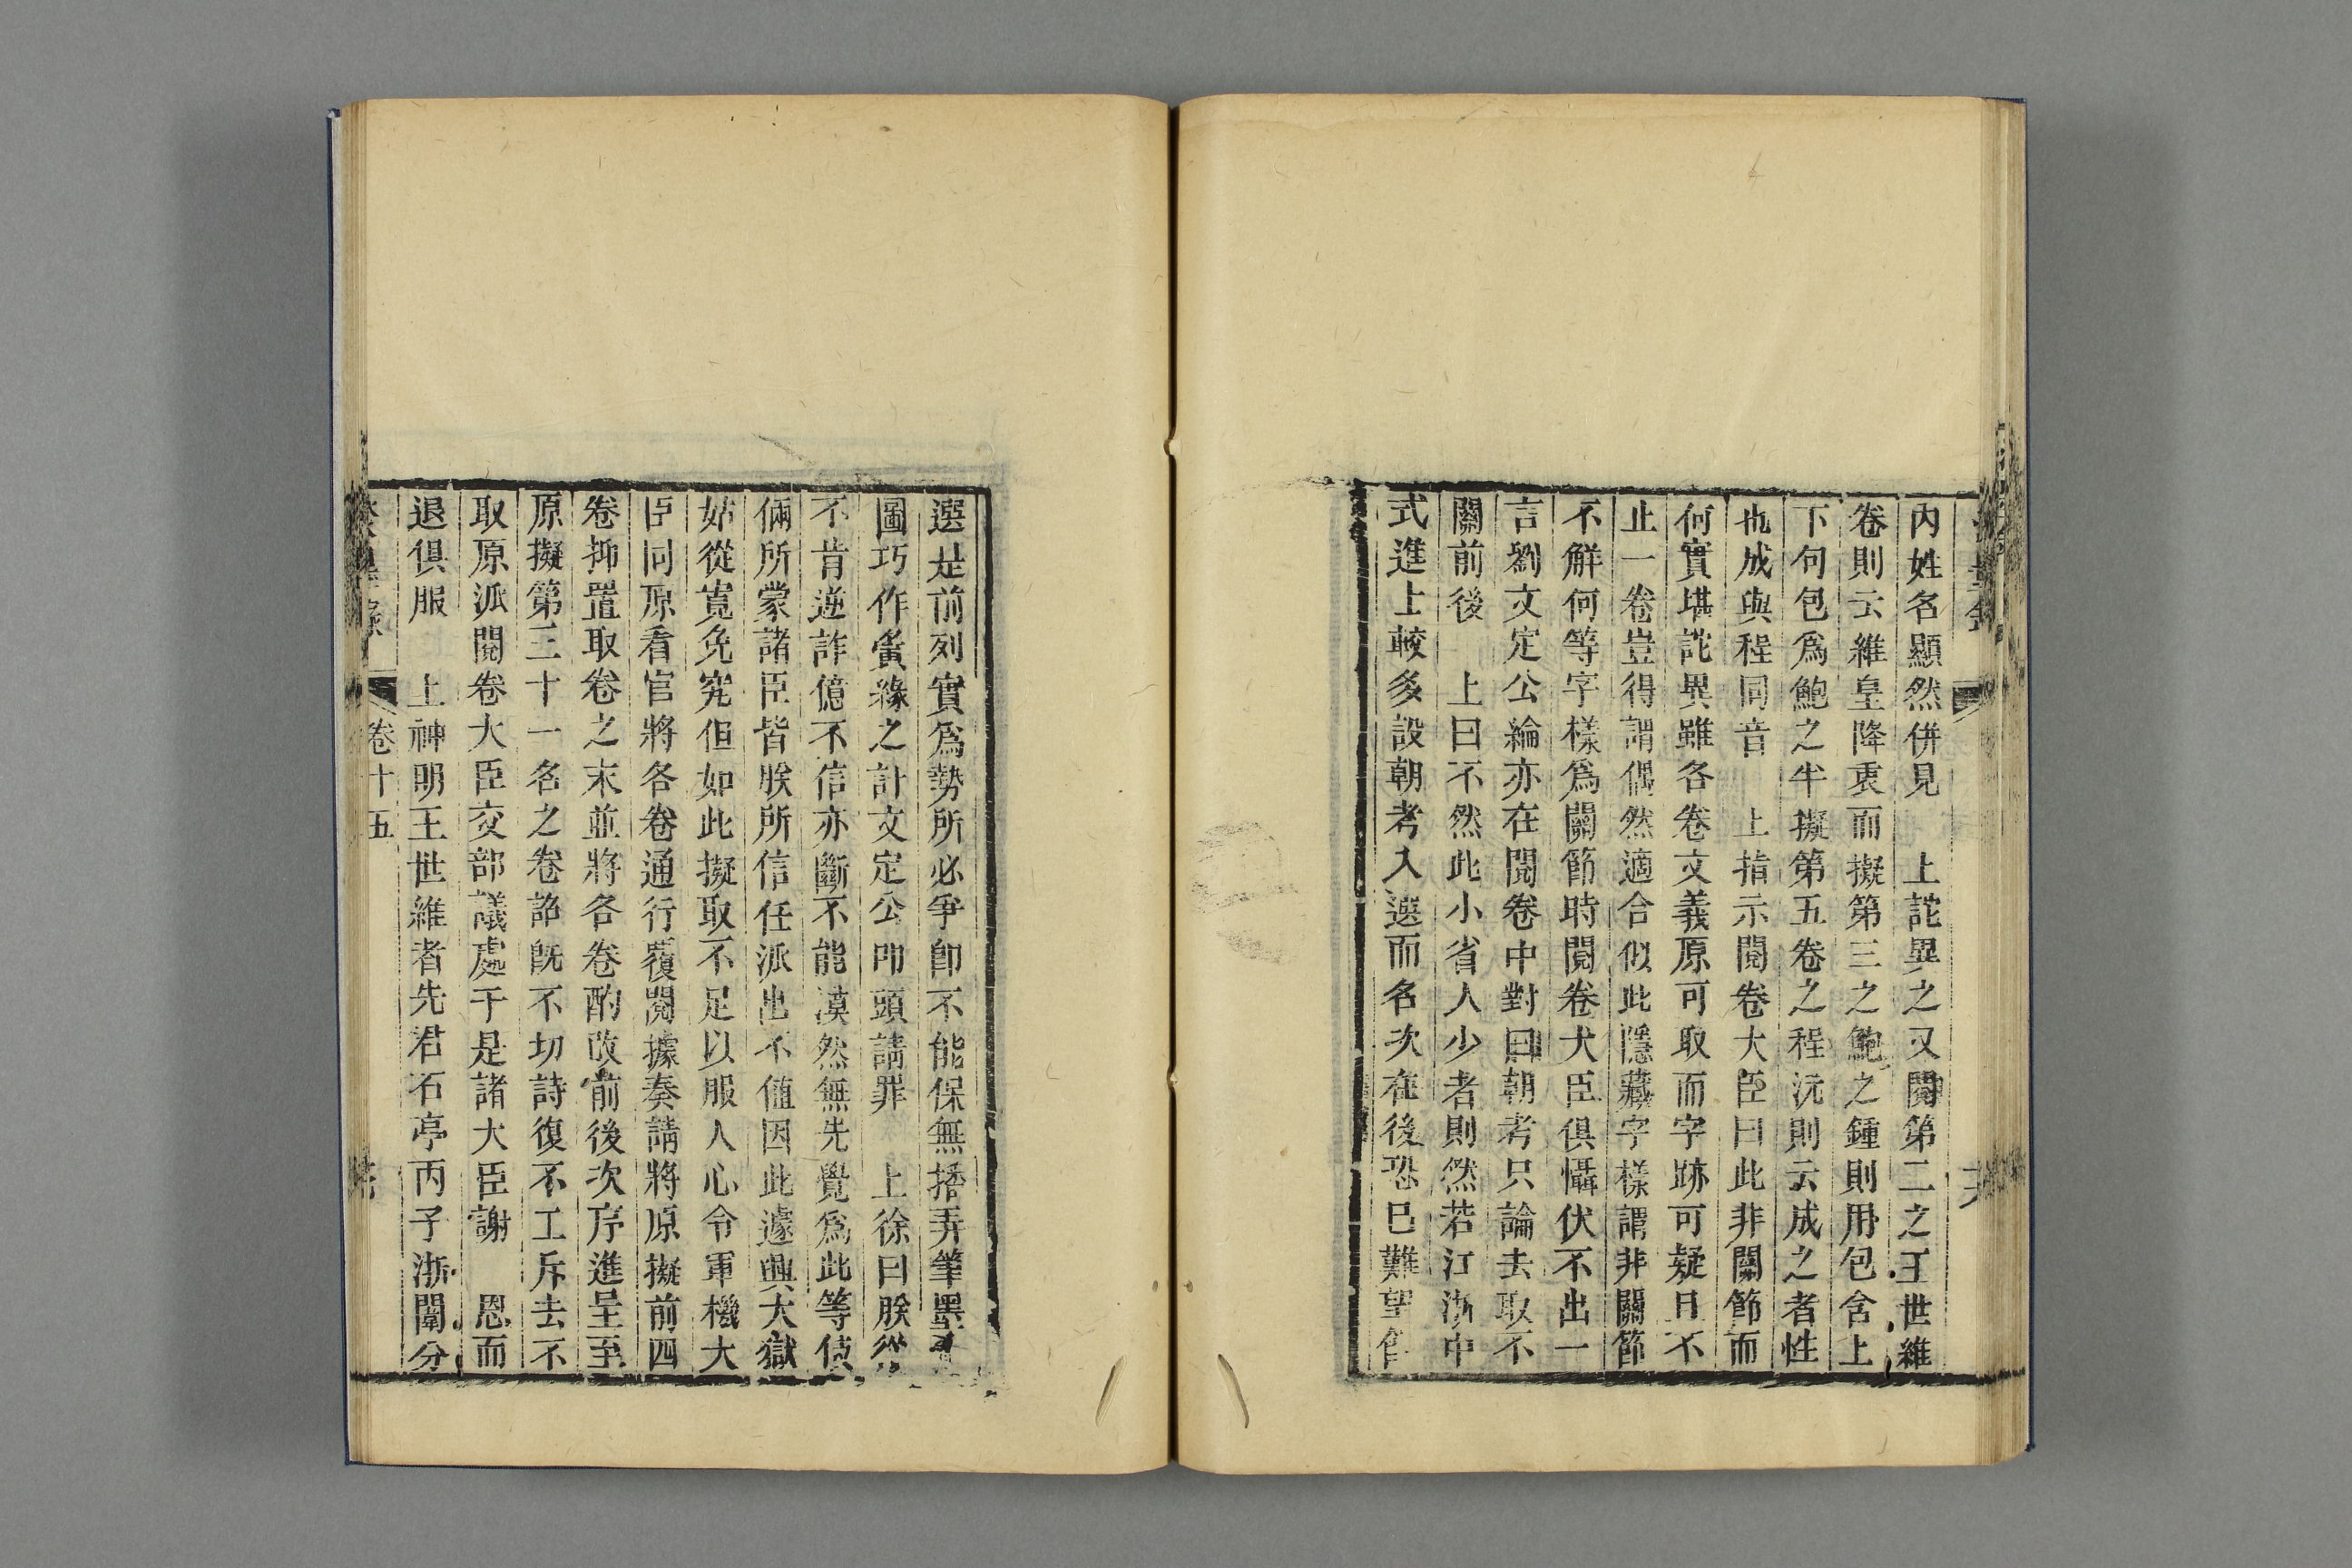 內姓名顯然併見　上詫異之又閱第二之王世維
卷則云維皇降衷而擬第三之鮑之鍾則用包含上
下句包爲鮑之半擬第五卷之程沅則云成之者性
也成與程同音　上指示閱卷大臣曰此非關節而
何實堪詫異雖各卷文義原可取而字跡可疑且不
止一卷豈得謂偶然適合似此隱藏字樣謂非關節
不解何等字樣爲關節時閱卷大臣俱懾伏不出一
言劉文定公綸亦在閱卷中對曰朝考只論去取不
關前後　上曰不然此小省人少者則然若江浙中
式進上較多設朝考入選而名次在後恐已難望館
選是前列實爲勢所必爭卽不能保無播弄筆墨
圖巧作夤緣之計文定公叩頭請罪　上徐曰朕從
不肯逆詐億不信亦斷不能漠然無先覺爲此等伎
倆所蒙諸臣皆朕所信任派出不值因此遽興大獄
姑從寬免究但如此擬取不足以服人心令軍機大
臣同原看官將各卷通行覆閱據奏請將原擬前四
卷抑置取卷之末並將各卷酌改前後次序進呈至
原擬第三十一名之卷詔旣不切詩復不工斥去不
取原派閱卷大臣交部議處于是諸大臣謝　恩而
退俱服　上神明王世維者先君石亭丙子浙闈分
卷十五